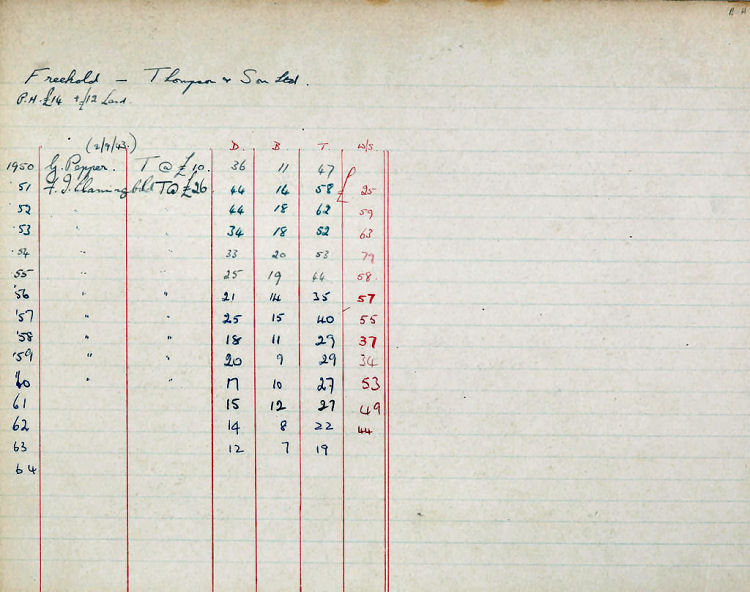 Freehold — Thompson & Son Ltd.
P.H. £14 + £12 Land.
(2/9/43.) D. B T W/S.
1950 G. Pepper. T @ £10. 36 11 47
'51 F. J. T @ £26 44 14 58 £ 25
'52 " " 44 18 62 59
'53 " " 34 18 52 63
'54 " " 33 20 53 79
'55 " " 25 19 44 58.
'56 " " 21 14 35 57
'57 " " 25 15 40 55
'58 " " 18 11 29 37
'59 " " 20 9 29 34
'60 " " 17 10 27 53
61 15 12 27 49
62 14 8 22 44
63 12 7 19
64